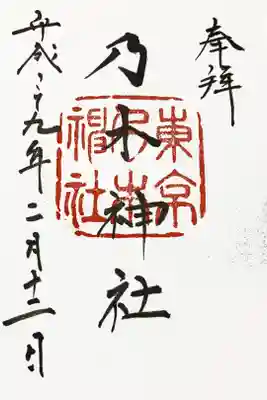 奉拝
乃木神社
東京乃木神社
平成二十九年二月十二日